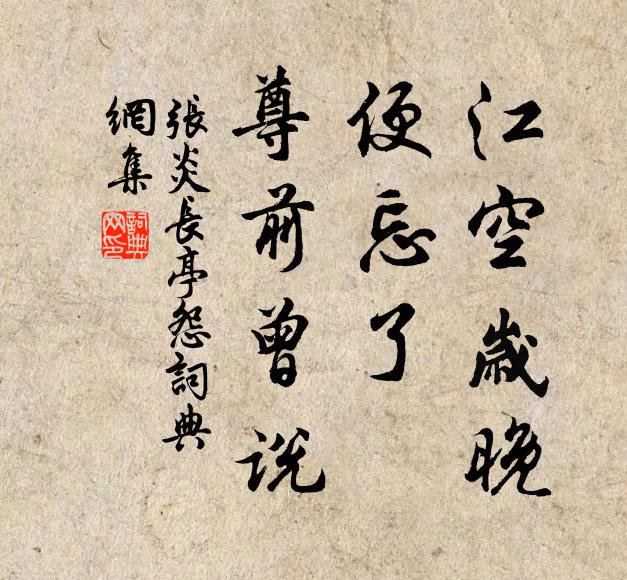 江空歲晚
便忘了
尊前曾説
張炎長亭怨詞典
網集
詞典
网印